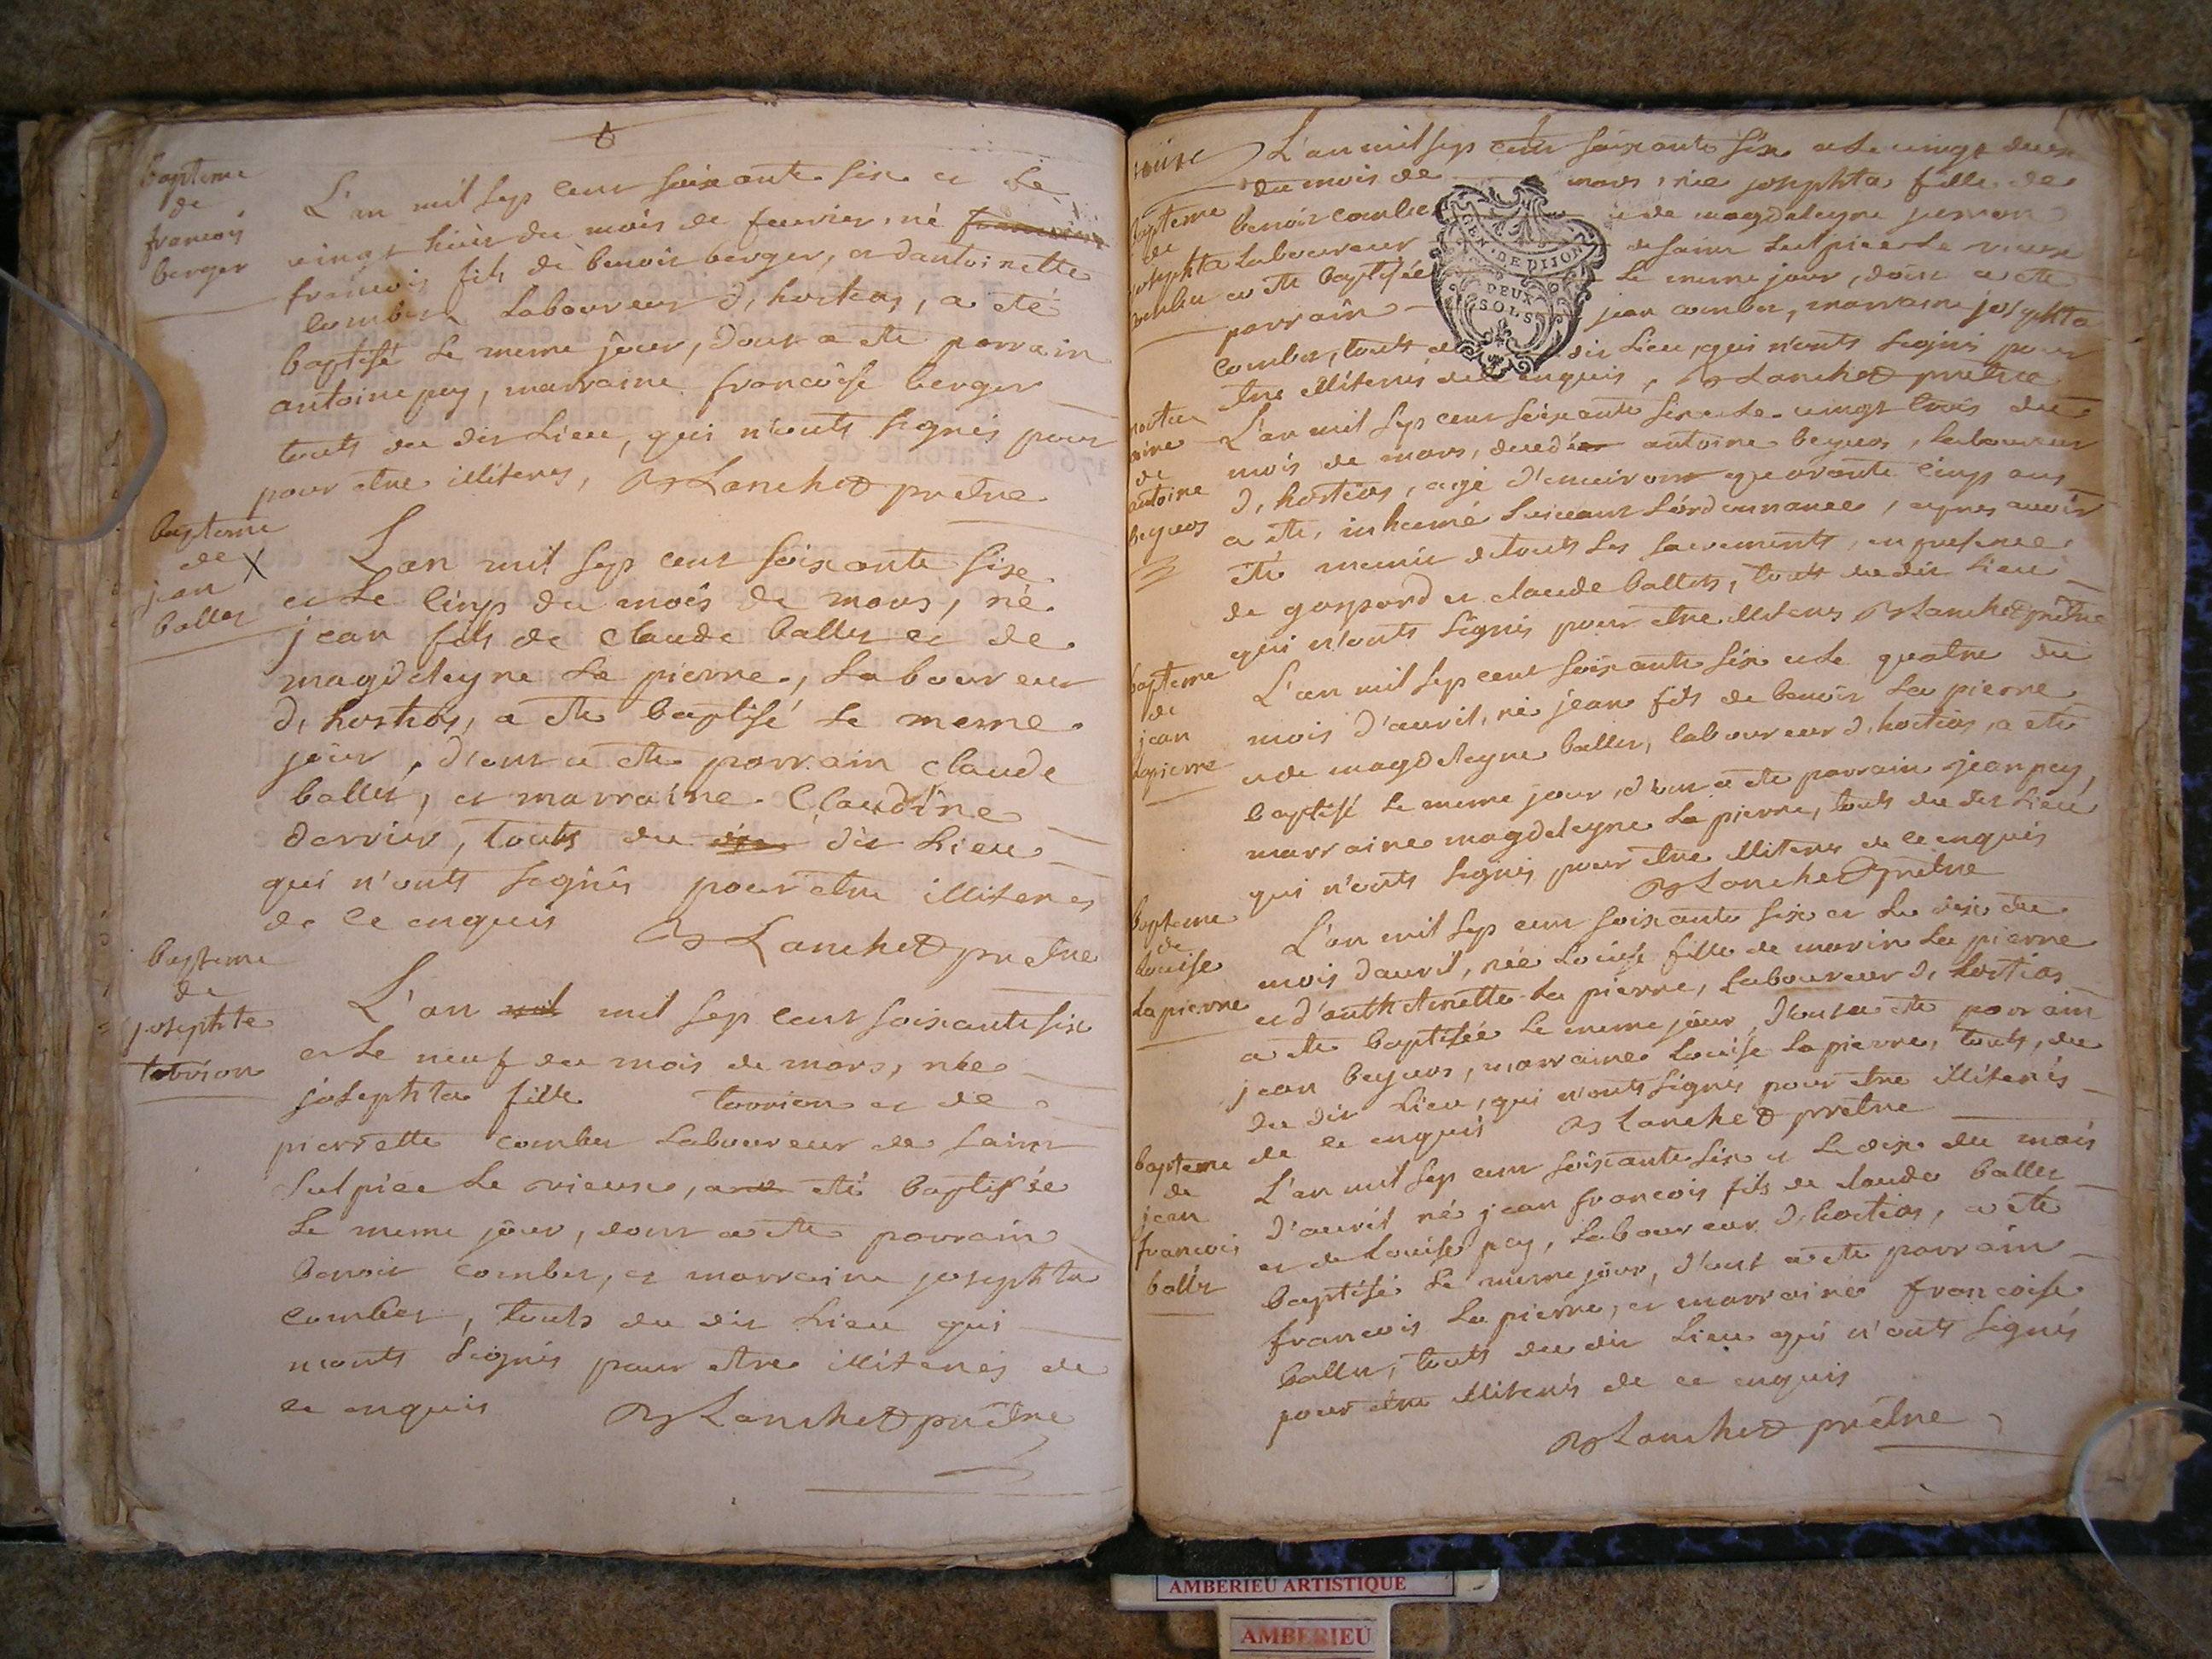 6
bapteme
de
francois
berger
L'an mil sept cent soixante six et le
vingt huit du mois de feurier, né
francois fils de benoit berger, et dantoinette
combet laboureur d'hostias, a eté
baptisé le meme jour, dont a ete parrain
antoine pey, marraine francoise berger
touts du dit lieu, qui n'onts signés pour
pour etre illiterés, Blanchet pretre
bapteme
de X
jean
ballet
L'an mil sept cent soixante six
et le cinq du mois de mars, né
jean fils de claude ballet et de
magdeleyne la pierre, laboureur
d'hostias, a ete baptisé le meme
jour, d'ont a ete parrain claude
ballet, et marraine claudine
derrier, touts du dit lieu
qui n'onts signés pour etre illiterés
de ce enquis Blanchet pretre
bapteme
de
josephte
torrion
L'an mil mil sept cent soixante six
et le neuf du mois de mars, née
josephta fille torrion et de
pierrette combet laboureur de saint
sulpice le vieux, a eté baptisée
le meme jour, dont a ete parrain
benoit combet, et marraine josephta
combet, touts du dit lieu qui
nonts signés pour etre illiterés de
ce enquis Blanchet pretre
L'an mil sept cent soixante six et le vingt deux
du mois de mars, née josephta fille de
bapteme benoit combet et de magdeleyne
de
josephta laboureur de saint sulpice le vieux
combet a ete baptisée le meme jour, dont a ete
parrain jean combet, marraine josephta
combet, touts du dit lieu, qui n'onts signés pour
etre illiterés de ce enquis, Blanchet pretre
GEN. DE DIJON
DEUX
SOLS
de
antoine
beguos
L'an mil sept cent soixante six et le vingt trois du
mois de mars, decedé antoine beguos, laboureur
d'hostias, agé d'enuiron quarante cinq ans
a ete inhumé suiuant l'ordonnance, apres auoir
été munit de touts les sacrements, en presence
de gaspard et claude ballets, touts du dit lieu
qui n'onts signés pour etre illiterés Blanchet pretre
bapteme
de
jean
lapierre
L'an mil sept cent soixante six et le quatre du
mois d'auril, né jean fils de benoit la pierre
et de magdeleyne ballet, laboureur d'hostias, a ete
baptisé le meme jour, d'ont a ete parrain jean pey,
marraine magdeleyne la pierre, touts du dit lieu
qui n'onts signés pour etre illiterés de ce enquis
Blanchet pretre
bapteme
de
louise
la pierre
L'an mil sept cent soixante six et le dix du
mois d'auril, née louise fille de marin la pierre
et d'anthoinette la pierre, laboureur d'hostias
a ete baptisée le meme jour, d'ont a ete parrain
jean beguos, marraine louise la pierre, touts, du
du dit lieu, qui n'onts signés pour etre illiterés
de ce enquis Blanchet pretre
bapteme
de
jean
francois
ballet
L'an mil sept cent soixante six et le dix du mois
d'auril né jean francois fils de claude ballet
et de louise pey, laboureur d'hostias, a ete
baptisé le meme jour, d'ont a ete parrain
francois la pierre, et marraine francoise
ballet, touts du dit lieu qui n'onts signés
pour etre illiterés de ce enquis
Blanchet pretre
AMBERIEU ARTISTIQUE
AMBERIEU